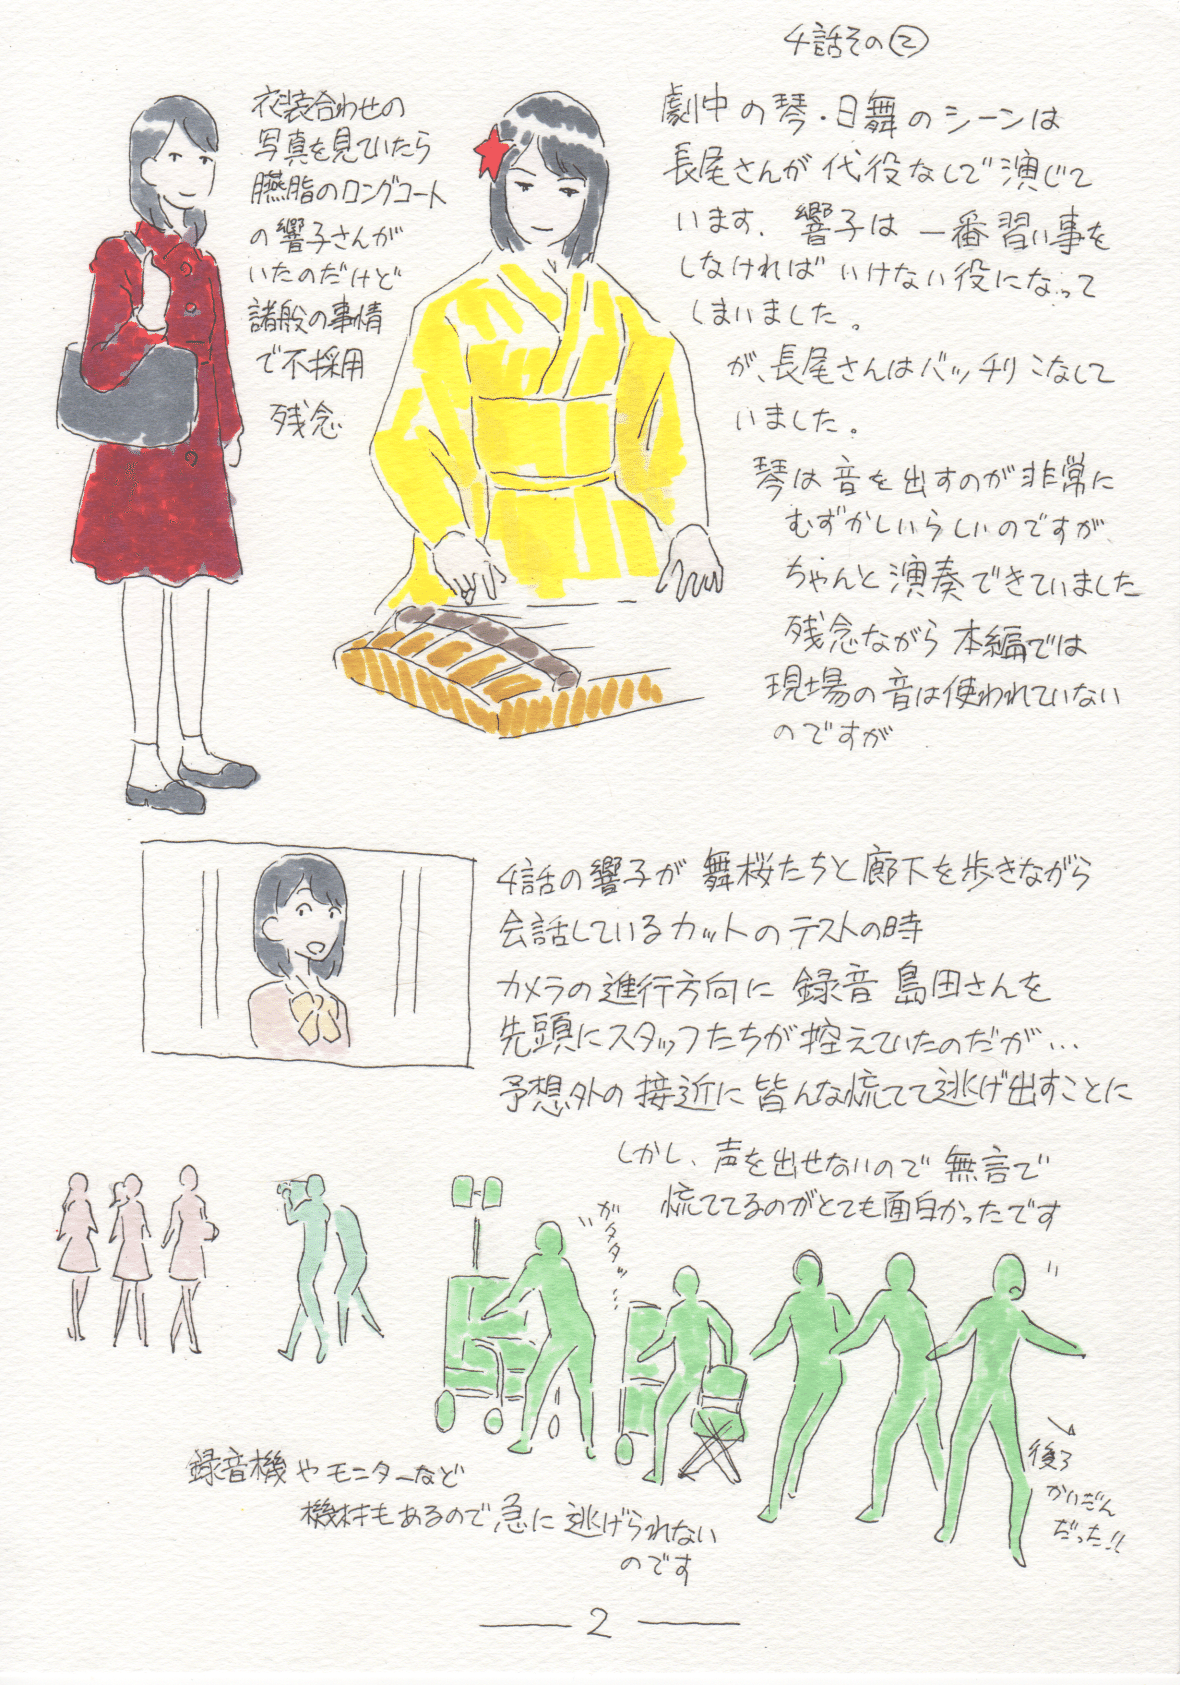 4話その②
衣装合わせの
写真を見ていたら
臙脂のロングコート
の響子さんが
いたのだけど
諸般の事情
で不採用
残念
劇中の琴・日舞のシーンは
長尾さんが代役なしで演じて
います、響子は一番習い事を
しなければいけない役になって
しまいました。
が、長尾さんはバッチリこなして
いました。
琴は音を出すのが非常に
むずかしいらしいのですが
ちゃんと演奏できていました
残念ながら本編では
現場の音は使われていない
のですが
4話の響子が舞桜たちと廊下を歩きながら
会話しているカットのテストの時
カメラの進行方向に録音島田さんを
先頭にスタッフたちが控えていたのだが…
予想外の接近に皆んな慌てて逃げ出すことに
しかし、声を出せないので無言で
慌ててるのがとても面白かったです
ガタタッ…
後ろ
かいだん
だった!!
録音機やモニターなど
機材もあるので急に逃げられない
のです
2